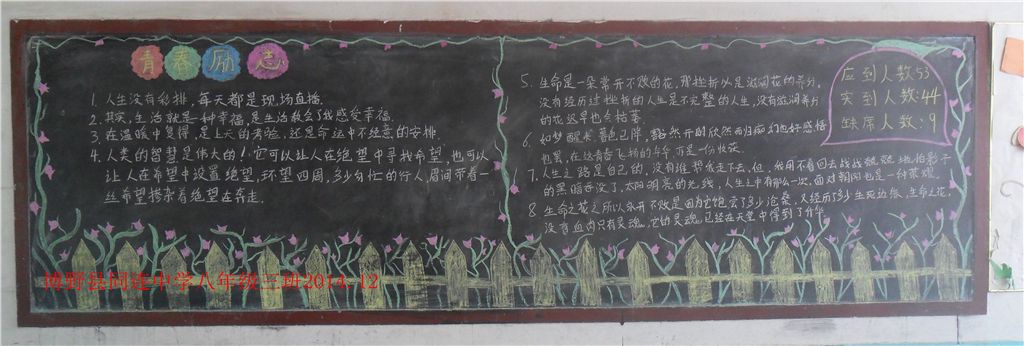 青春励志
1. 人生没有彩排，每天都是现场直播.
2. 其实，生活就是一种幸福，是生活教会了我感受幸福.
3. 在温暖中复得，是上天的考验，还是命运中不经意的安排.
4. 人类的智慧是伟大的！它可以让人在绝望中寻找希望，也可以
让人在希望中设置绝望，环望四周，多少匆忙的行人，眉间带着一
丝希望搀杂着绝望在奔走.
5. 生命是一朵常开不败的花，那挫折以是滋润花的养分，
没有经历过挫折的人生是不完整的人生，没有滋润养分
的花迟早也会枯落.
6. 如梦醒来暮色已降，豁然开朗欣然而归
7. 人生之路是自己的，没有谁帮我走下去，但，我用不着回去战战兢兢地怕影子
的黑暗吞没了，太阳明亮的光线，人生之中有那么一次，面对朝阳也是一种荣耀.
8. 生命之花之所以永开不败是因为它饱尝了多少沧桑，又经历了多少生死边缘，生命之花，
没有血肉只有灵魂，它的灵魂已经在天堂中得到了升华.
应到人数：53
实到人数：44
缺席人数：9
博野县同连中学八年级三班2014.12